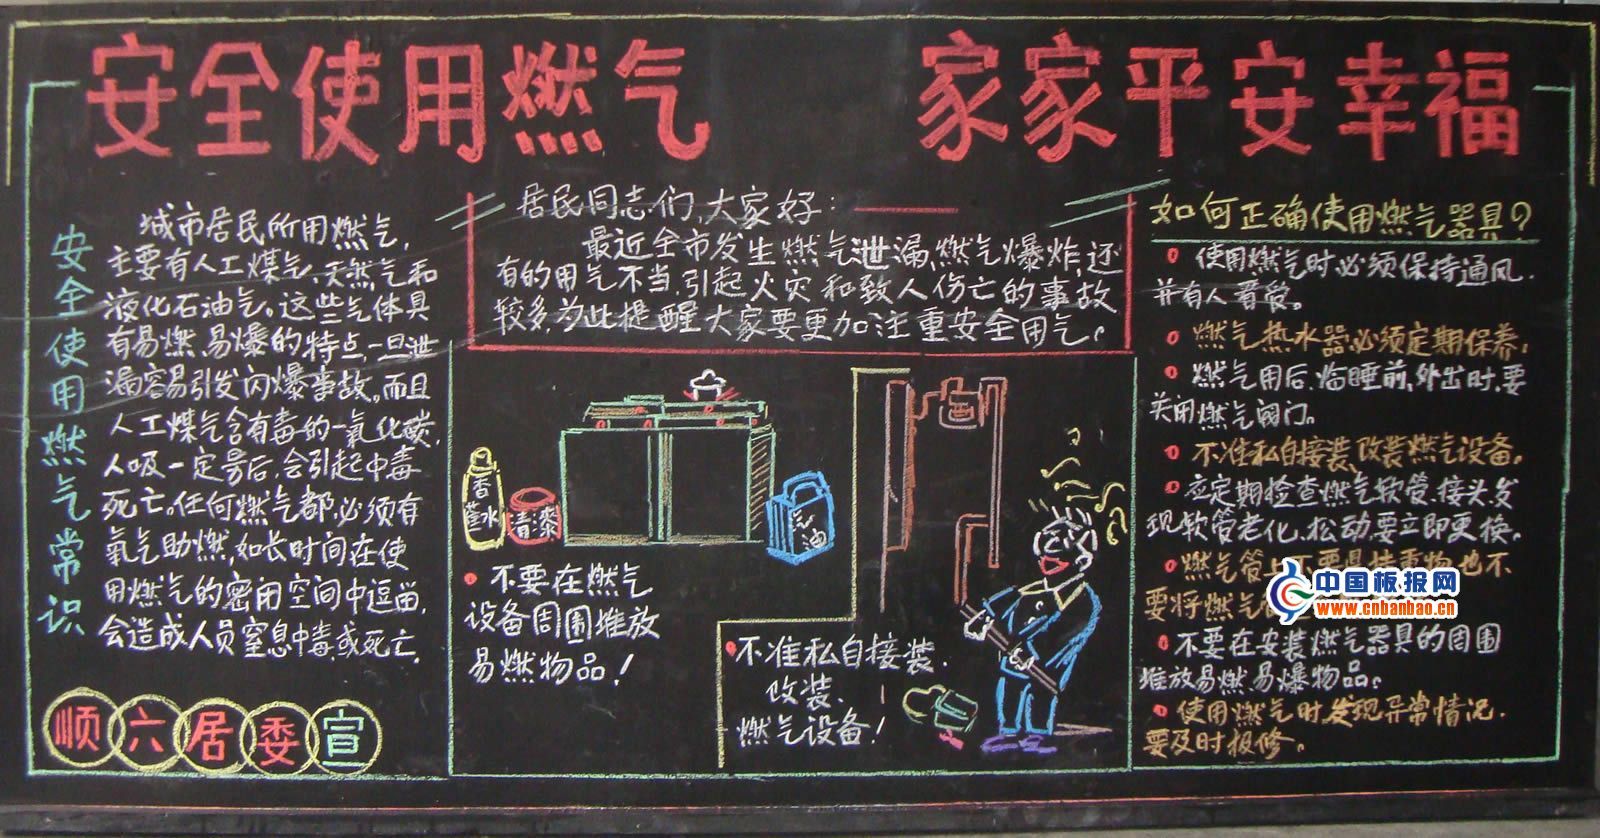 安全使用燃气 家家平安幸福
安全使用燃气常识
城市居民所用燃气,
主要有人工煤气、天然气和
液化石油气。这些气体具
有易燃、易爆的特点,一旦泄
漏容易引发闪爆事故。而且
人工煤气含有毒的一氧化碳,
人吸一定号后,会引起中毒
死亡。任何燃气都必须有
氧气助燃,如长时间在使
用燃气的密用空间中逗留,
会造成人员窒息中毒或死亡.
顺六居委宣
居民同志们,大家好:
最近全市发生燃气泄漏,燃气爆炸,还
有的用气不当,引起火灾和致人伤亡的事故
较多,为此提醒大家要更加注重安全用气。
香蕉水
清漆
汽油
不要在燃气
设备周围堆放
易燃物品!
不准私自接装.
改装、
燃气设备!
如何正确使用燃气器具?
使用燃气时必须保持通风.
并有人看管。
燃气热水器必须定期保养。
燃气用后、临睡前、外出时,要
关闭燃气阀门。
不准私自接装、改装燃气设备。
应定期检查燃气软管、接头,发
现软管老化、松动,要立即更换.
燃气管上不要 也不
要将燃气
不要在安装燃气器具的周围
堆放易燃、易爆物品。
使用燃气时发现异常情况.
要及时报修。
中国板报网
www.cnbanbao.cn